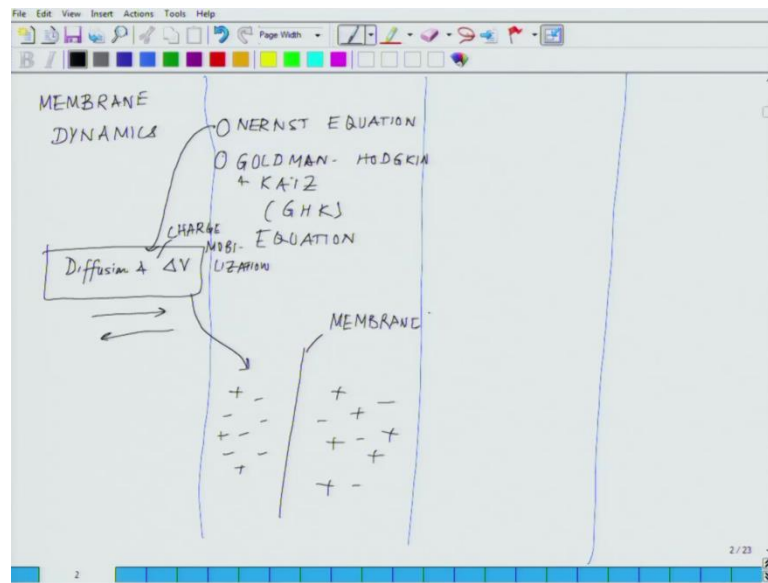 File Edit View Insert Actions Tools Help
Page Width
B I
MEMBRANE
DYNAMICS
NERNST EQUATION
GOLDMAN- HODGKIN
+ KATZ
(GHK)
EQUATION
CHARGE
MOBI-
LIZATION
Diffusion & ΔV
MEMBRANE
+ - - + - + - - +
+ - + - + - + + + -
2/23
2